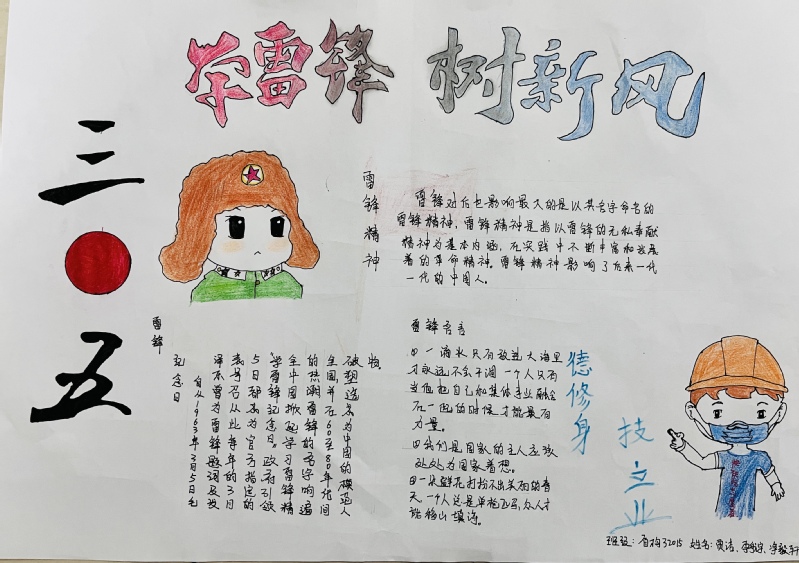 学雷锋 树新风
三
五
雷锋精神
雷锋对后世影响最大的是以其名字命名的
雷锋精神,雷锋精神是指以雷锋的无私奉献
精神为基本内涵,在实践中不断丰富和发展
着的革命精神。雷锋精神影响了后来一代
一代的中国人。
雷锋
纪念日
自从1963年3月5日毛
泽东曾为雷锋题词及发
表号召从此每年的3月
5日都成为官方指定的
学雷锋纪念日。政府引领
全中国掀起学习雷锋精
的热潮雷锋的名字响遍
全国并在60至80年代间
被塑造成为中国的模范人
物。
雷锋名言
一滴水只有放进大海里
才永远不会干涸一个人只有
当他把自己和集体事业融合
在一起的时候才能最有
力量。
我们是国家的主人应该
处处为国家着想。
一朵鲜花打扮不出美丽的春
天,一个人总是单枪匹马,众人才
能移山填海。
德修身
技立业
班级: 姓名: